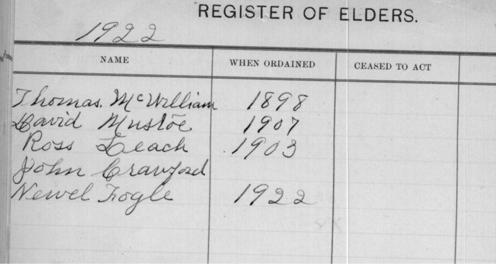 REGISTER OF ELDERS.
1922
NAME WHEN ORDAINED CEASED TO ACT
Thomas McWilliam 1898
David Mustoe 1907
Ross Leach 1903
John Crawford
Newel Fogle 1922